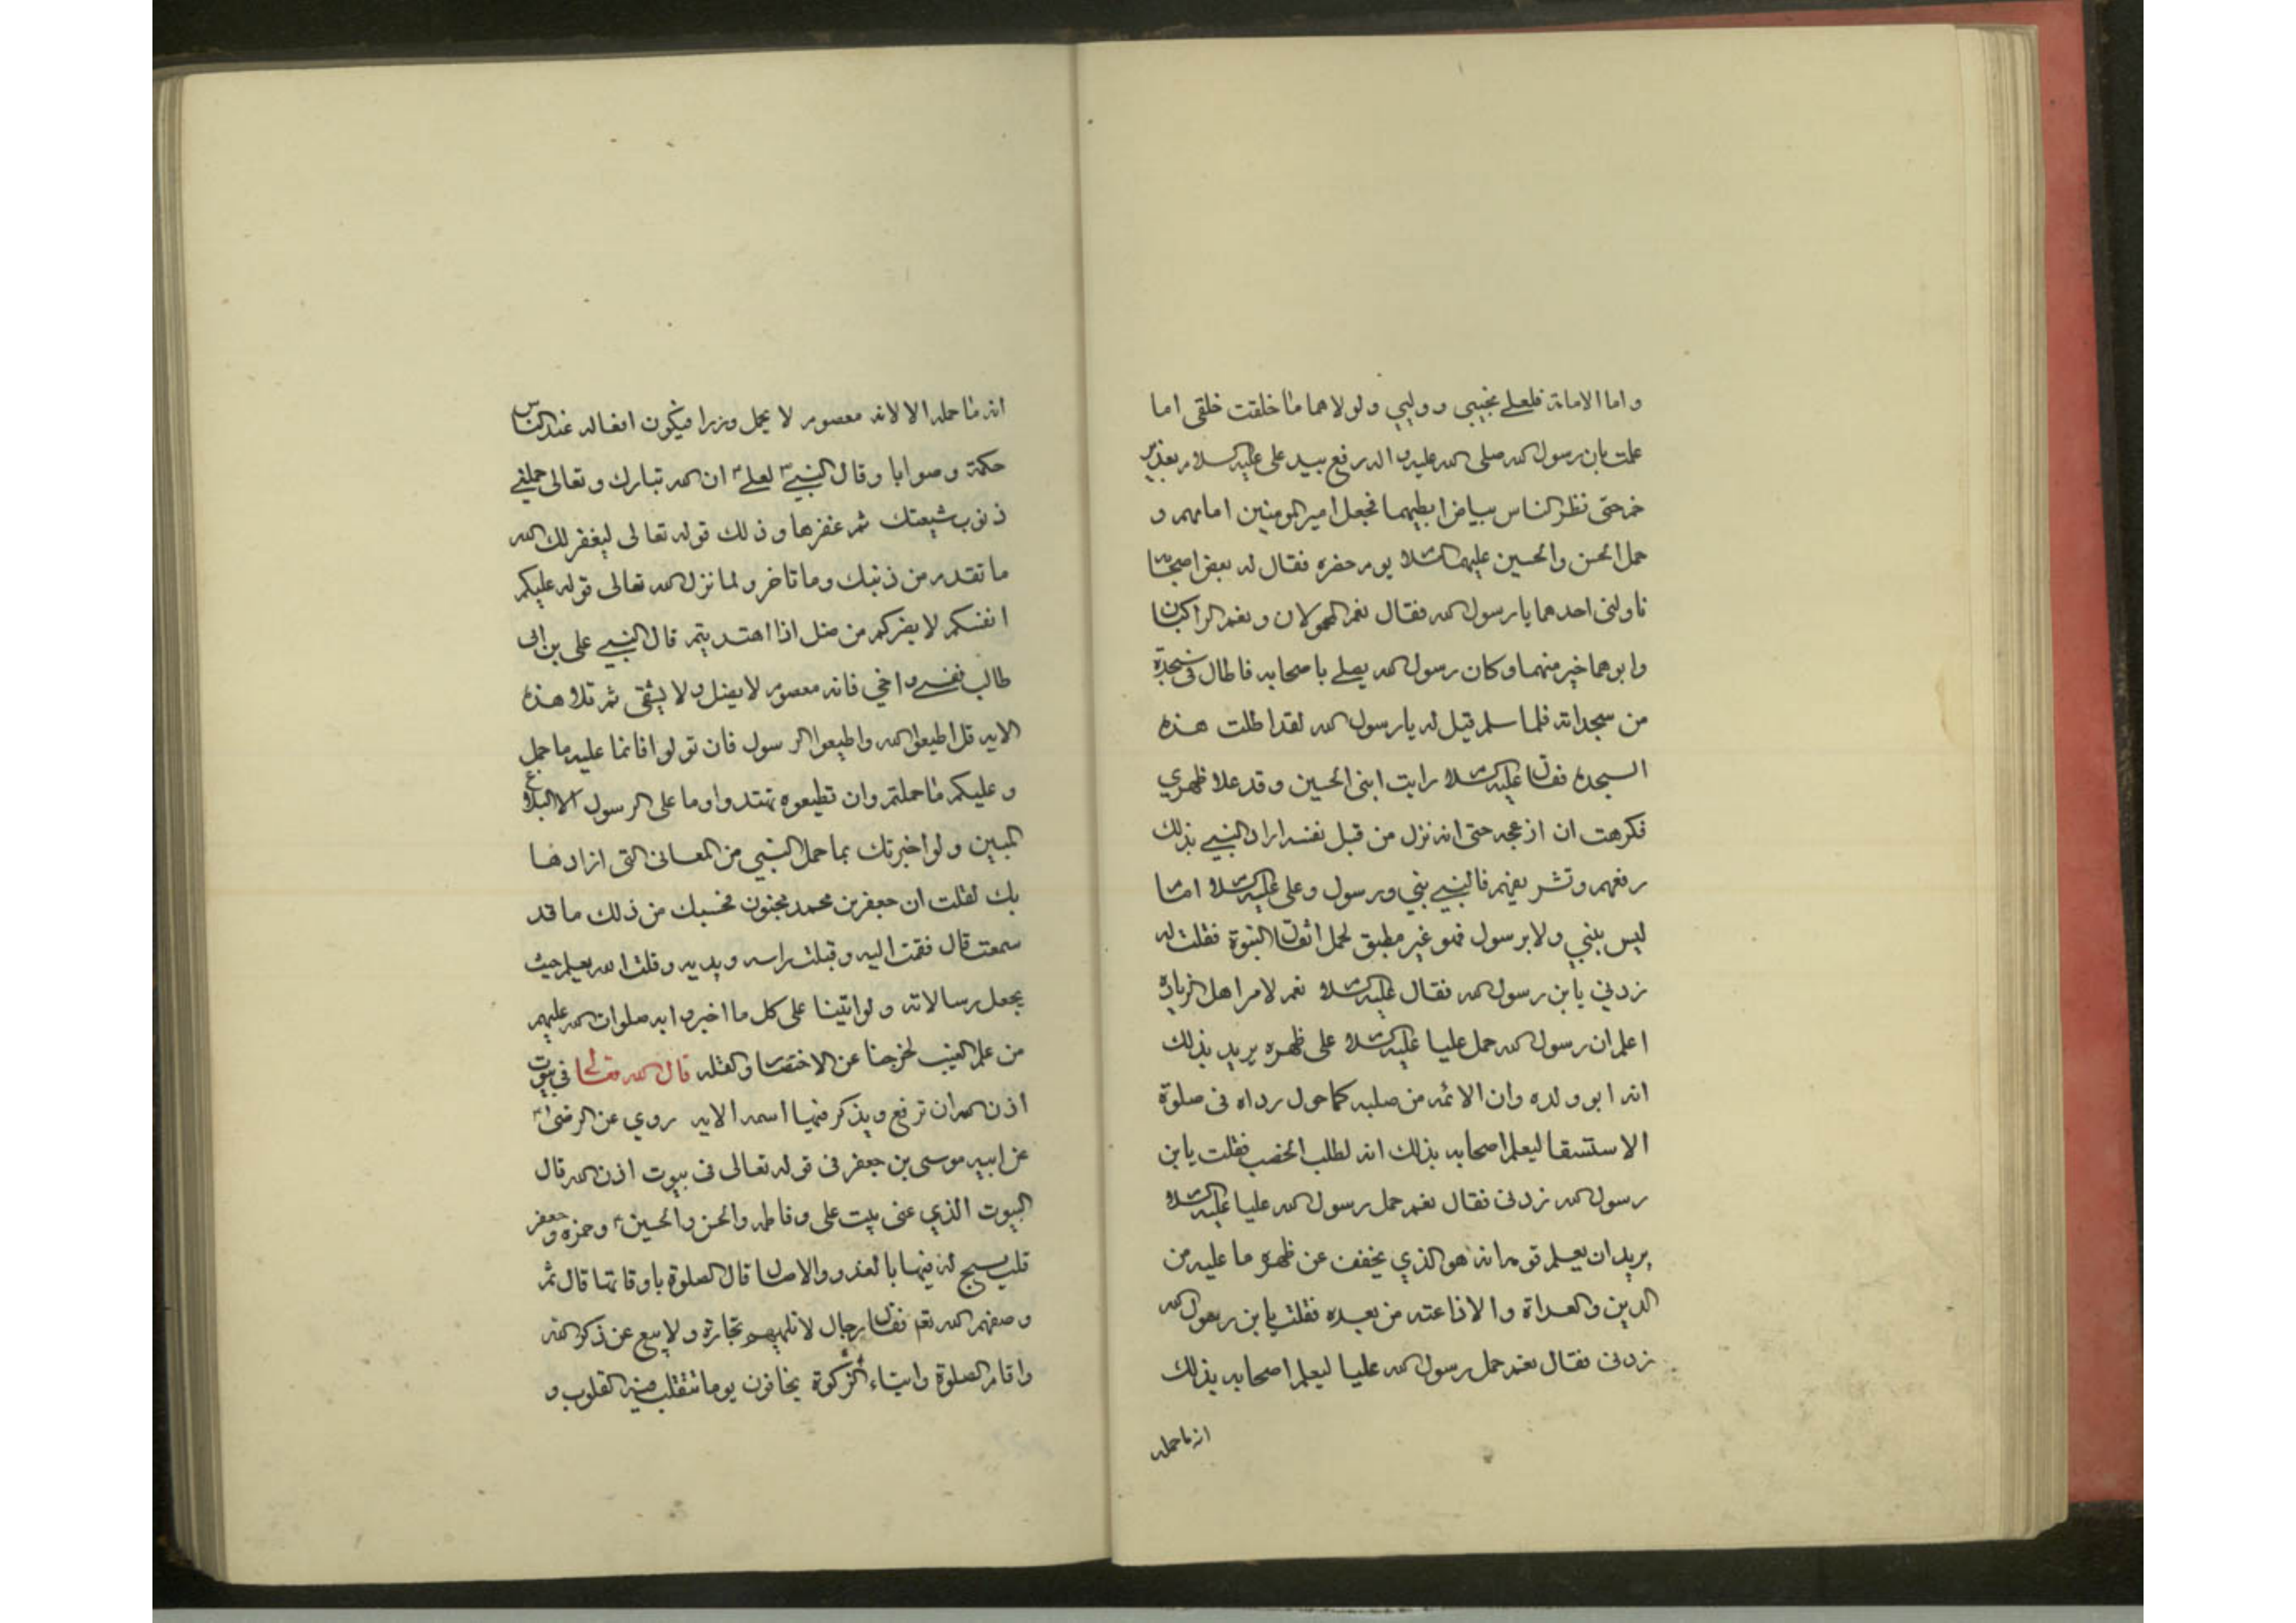 واما الامامة فلعلي نجيبي ووليي ولولاهما ما خلقت خلقي اما
علمت بان رسول الله صلى الله عليه واله رفع بيد علي عليه السلام بغدير
خم حتى نظر الناس بياض ابطيهما فجعل امير المومنين امامهم و
حمل الحسن والحسين عليهما السلام يوم حفره فقال له بعض اصحابه
ناولني احدهما يا رسول الله فقال نعم المحمولان ونعم الراكبان
وابوهما خير منهما وكان رسول الله يصلي باصحابه فاطال في سجدة
من سجداته فلما سلم قيل له يا رسول الله لقد اطلت هذه
السجدة فقال عليه السلام رايت ابني الحسين وقد علا ظهري
فكرهت ان ازعجه حتى انه نزل من قبل نفسه اراد النبي بذلك
رفعهم وتشريفهم فالنبي نبي ورسول وعلي عليه السلام امام
ليس بنبي ولا برسول فهو غير مطيق لحمل اثقال النبوة فقلت له
زدني يابن رسول الله فقال عليه السلام نعم لامر اهل الزيادة
اعلم ان رسول الله حمل عليا عليه السلام على ظهره يريد بذلك
انه ابو ولده وان الائمه من صلبه كما حول رداه في صلوة
الاستسقا ليعلم اصحابه بذلك انه لطلب الخصب فقلت يابن
رسول الله زدني فقال نعم حمل رسول الله عليا عليه السلام
يريد ان يعلم قومه انه هو الذي يخفف عن ظهره ما عليه من
الدين والعداة والاذاعته من بعده فقلت يابن رسول الله
زدني فقال نعم حمل رسول الله عليا ليعلم اصحابه بذلك
انه ما حمله
انه ما حمله الا لانه معصوم لا يحمل وزرا فيكون افعاله عند الناس
حكمة وصوابا وقال النبي لعلي ان الله تبارك وتعالى حملني
ذنوب شيعتك ثم غفرها وذلك قوله تعالى ليغفر لك الله
ما تقدم من ذنبك وما تاخر ولما نزل الله تعالى قوله عليكم
انفسكم لا يضركم من ضل اذا اهتديتم قال النبي علي بن ابي
طالب نفسي واخي فانه معصوم لا يضل ولا يشقى ثم تلا هذه
الايه قل اطيعوا الله واطيعوا الرسول فان تولوا فانما عليه ما حمل
وعليكم ما حملتم وان تطيعوه تهتدوا وما على الرسول الا البلاغ
المبين ولو اخبرتك بما حمل النبي من المعاني التي ارادها
بك لقلت ان جعفر بن محمد مجنون فحسبك من ذلك ما قد
سمعت قال فقمت اليه وقبلت راسه ويديه وقلت الله يعلم حيث
يجعل رسالاته ولو اتينا على كل ما اخبروا به صلوات الله عليهم
من علم الغيب لخرجنا عن الاختصار والقله قال الله تعالى في بيوت
اذن الله ان ترفع ويذكر فيها اسمه الايه روي عن الرضى
عن ابيه موسى بن جعفر في قوله تعالى في بيوت اذن الله قال
البيوت الذي عنى بيت علي وفاطمه والحسن والحسين وحمزه وجعفر
قلت يسبح له فيها بالغدو والاصال قال الصلوة باوقاتها قال ثم
وصفهم الله تعم فقال رجال لا تلهيهم تجارة ولا بيع عن ذكر الله
واقام الصلوة وايتاء الزكوة يخافون يوما تتقلب فيه القلوب و